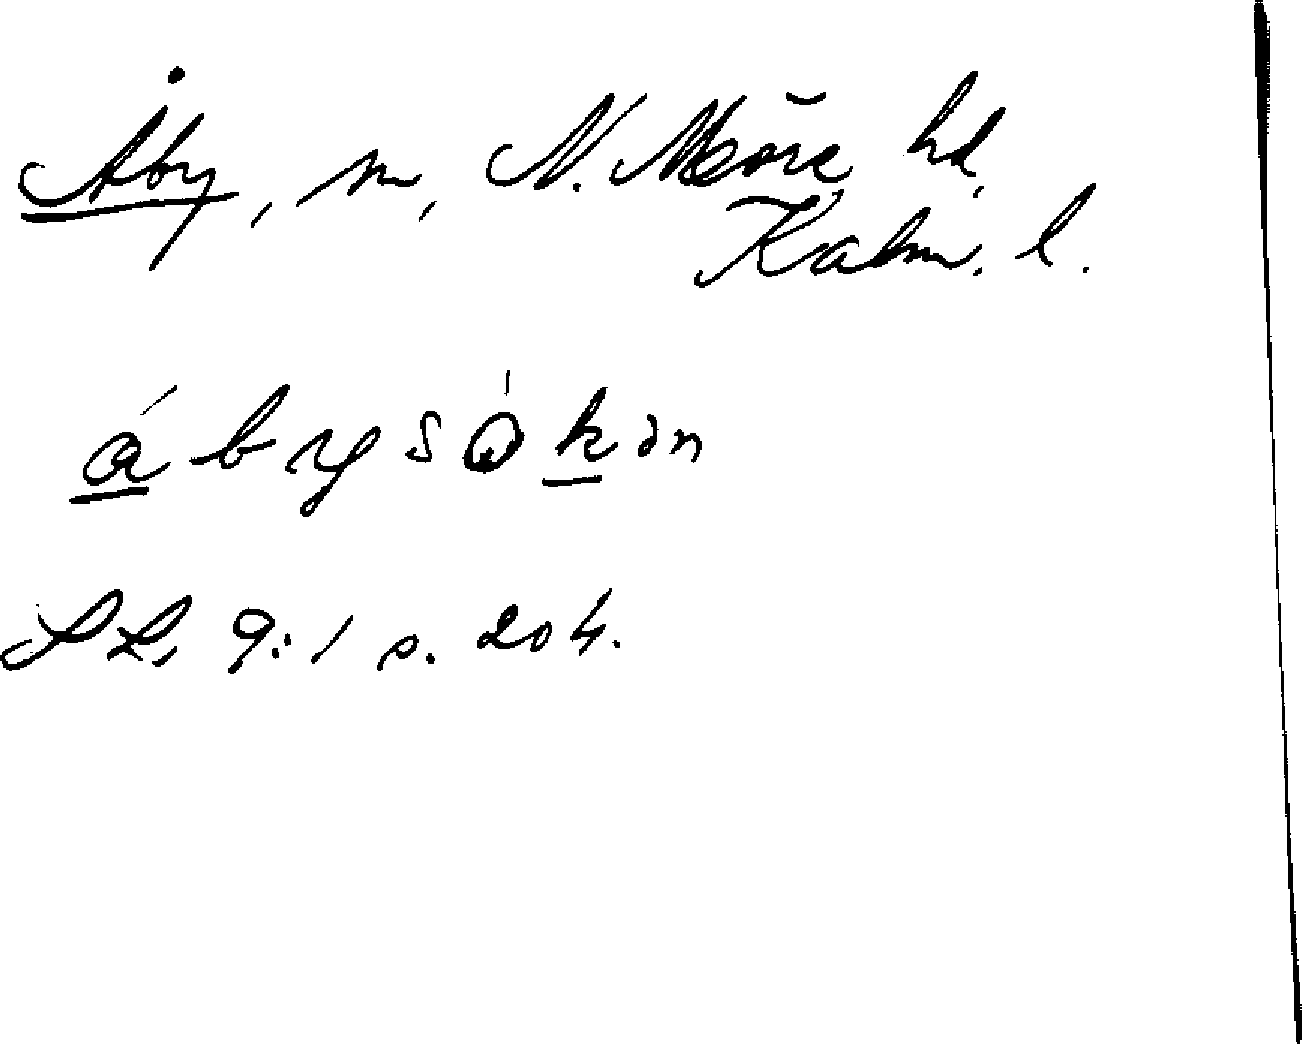 Åby, sn, N. Möre hd,
Kalm. l.
ábysǫ́kən
SL, 9:1 s. 204.